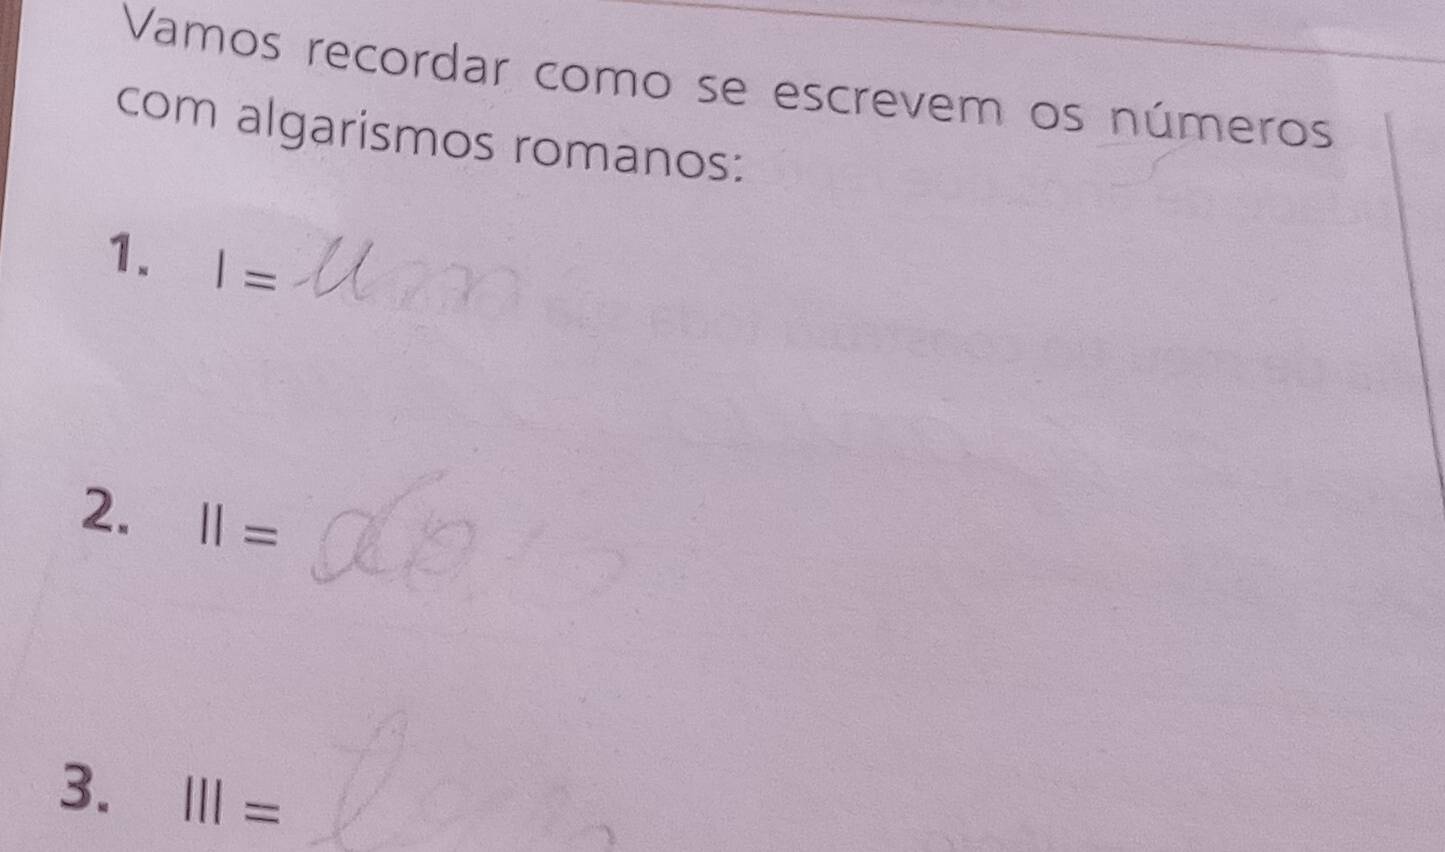 Vamos recordar como se escrevem os números
com algarismos romanos:
1. I = um
2. II = dois
3. III =